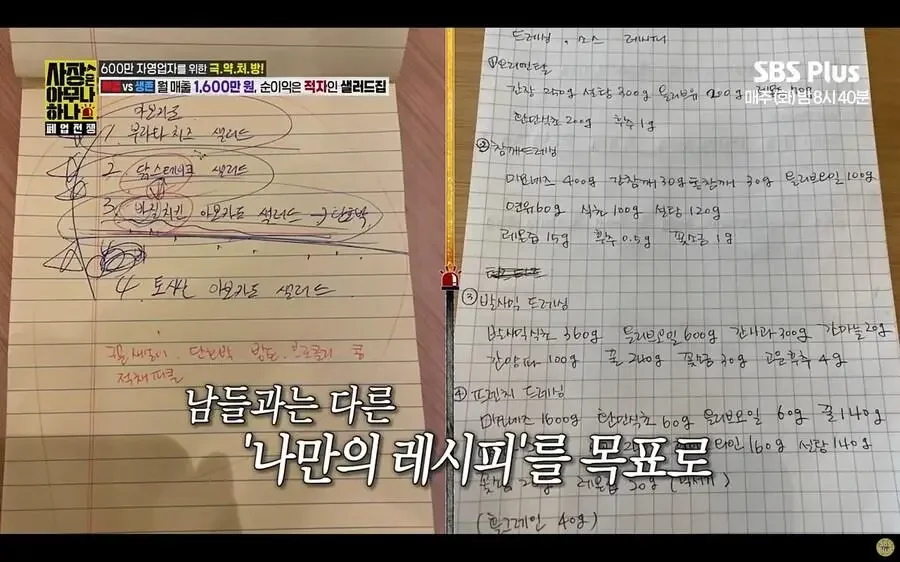 사장은
아무나
하나
폐업전쟁
600만 자영업자를 위한 극.약.처.방!
vs 생존 월 매출 1,600만 원, 순이익은 적자인 샐러드집
SBS Plus
매주(화)밤 8시 40분
1. 부라타치즈 샐러드
2. 닭스테이크 샐러드
3. 바질치킨 아보카도 샐러드 →
4. 아보카도 샐러드
단호박
적채피클
드레싱. 소스 레시피
① 오리엔탈
간장 250g 설탕 300g 올리브유
200g 후추 1g
② 참깨드레싱
마요네즈 400g 간참깨 30g 통참깨 30g 올리브오일 100g
연유 60g 식초 100g 설탕 120g
레몬즙 15g 후추 0.5g 꽃소금 1g
③ 발사믹 드레싱
발사믹식초 360g 올리브오일 600g 간사과 300g 간마늘 20g
간양파 100g 꿀 240g 꽃소금 30g 고운후추 4g
④ 프렌치 드레싱
마요네즈 1600g 60g 올리브오일 60g 꿀 140g
와인 160g 설탕 140g
레몬즙
(홀그레인 40g)
남들과는 다른
'나만의 레시피'를 목표로